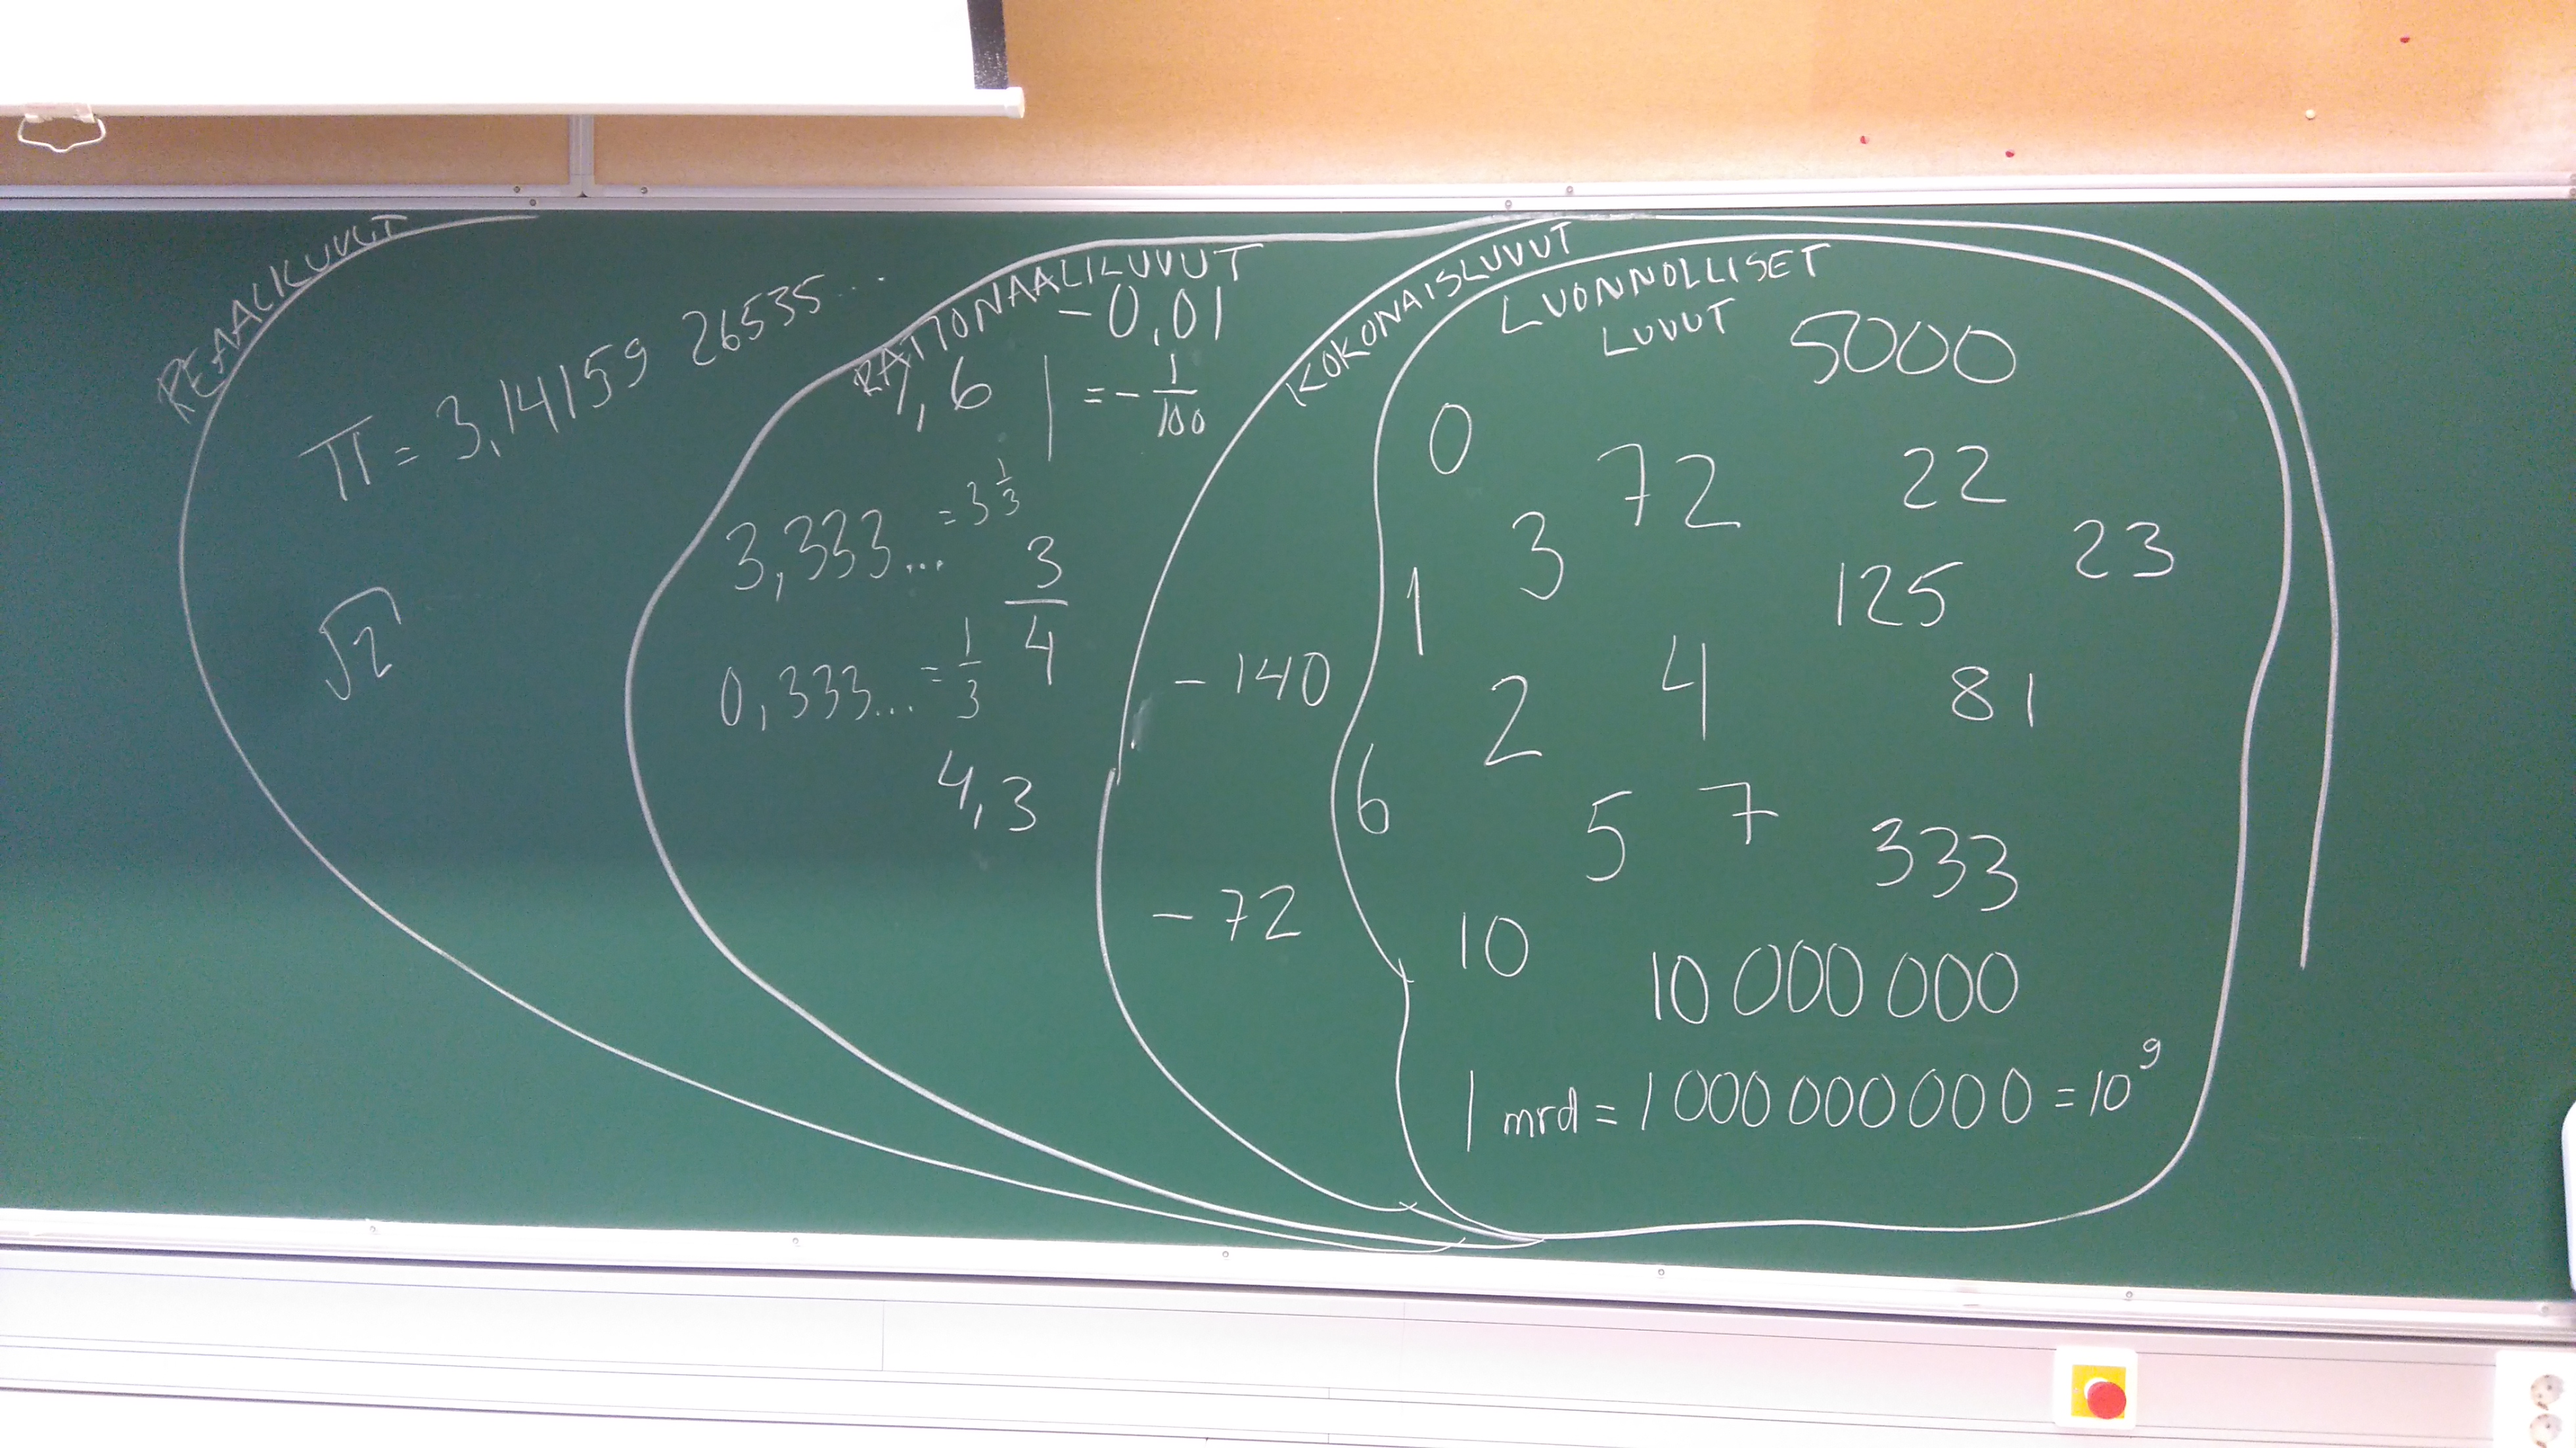 REAALILUVUT
π = 3,14159 26535...
√2
RATIONAALILUVUT
-0,01
= - 1/100
1,6
3,333... = 3 1/3
3/4
0,333... = 1/3
4,3
KOKONAISLUVUT
-140
-72
LUONNOLLISET
LUVUT
5000
0 72 22
3 125 23
1
2 4 81
6 5 7 333
10 10 000 000
1 mrd = 1 000 000 000 = 10⁹